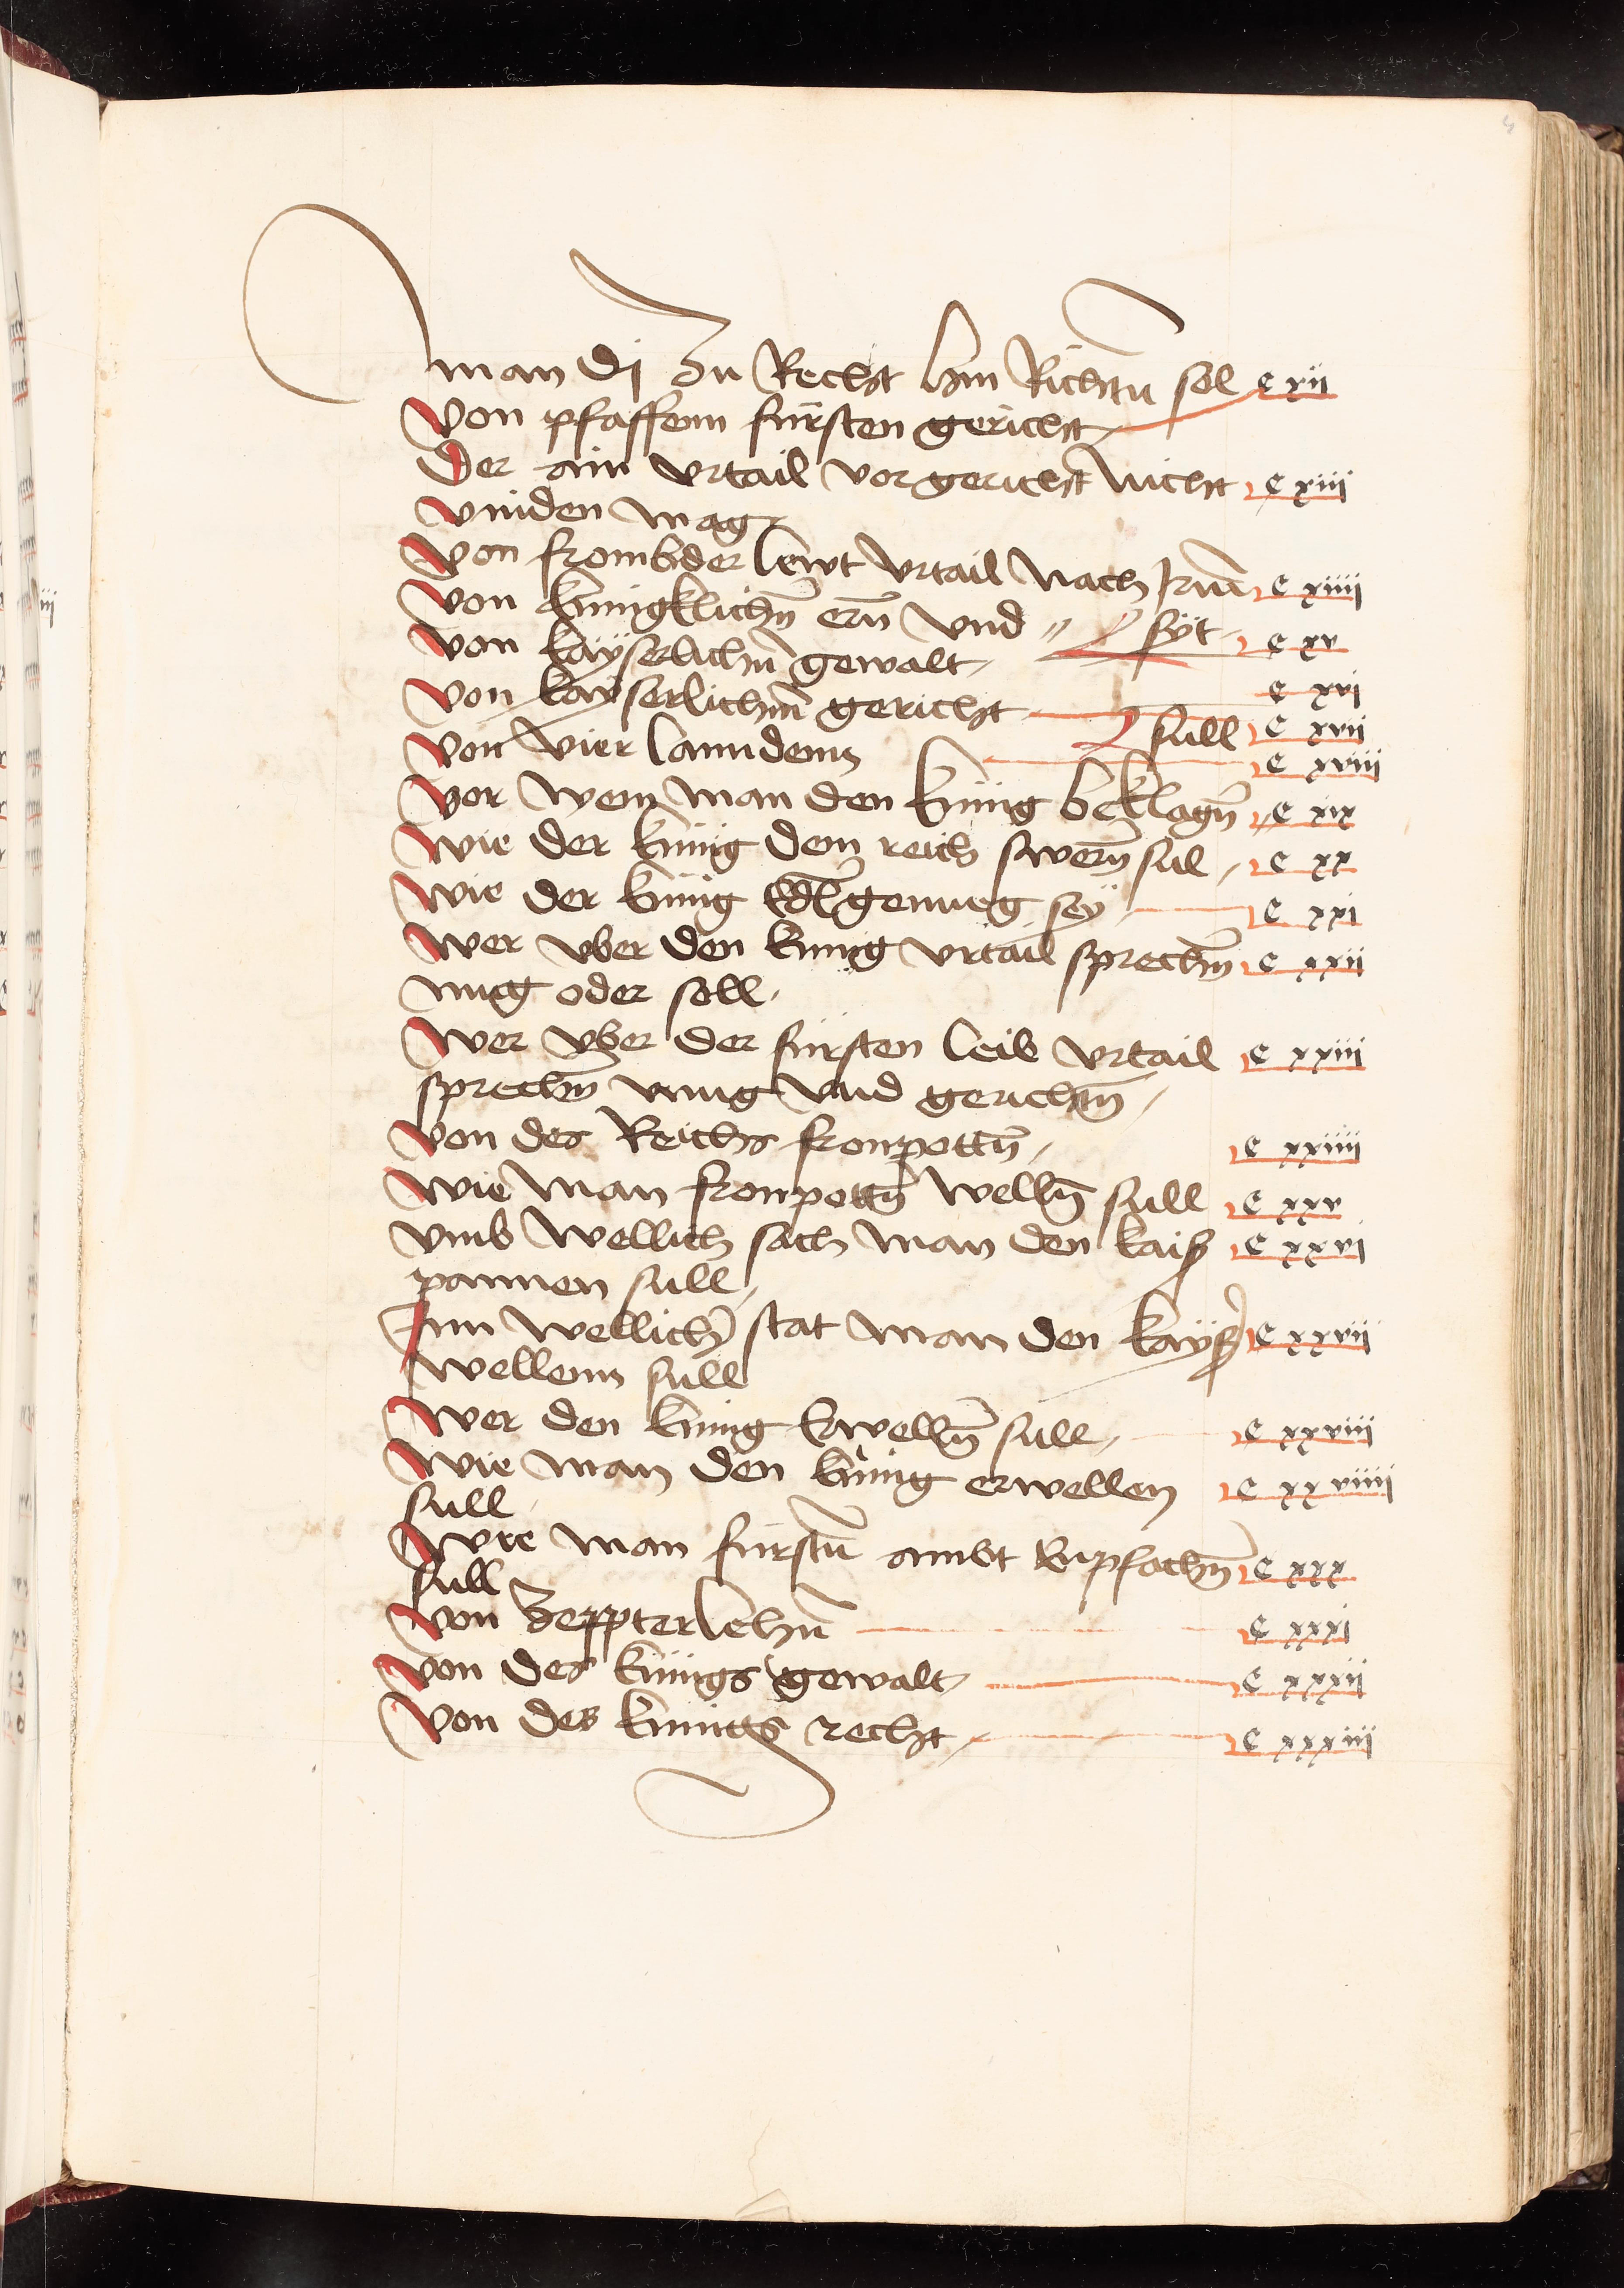 man dj zu Recht hin Richtn̄ sol c xii
Von pfaffenn fürsten gericht
Der ain vrtail vor gericht nicht c xiii
vinden mag
Von frombder lewt vrtail nach Irm̄ c xiiii
syt
Von künigklichn̄ ern̄ vnd c xv
Von kayserlichn̄ gewalt c xvi
Von kayserlichm̄ gericht c xvii
Von vier lanndenn c xviii
sull
Vor wem man den künig beklagn̄ c xix
Wie der künig dem reich swern̄ sul c xx
Wie der künig Edl genueg sey c xxi
Wer vber den künig vrtail sprechn̄ c xxii
mug oder soll
Wer vber der fürsten leib vrtail c xxiii
sprechn̄ mug vnd gerichtn̄
Von des Reichs fronpottn̄ c xxiiii
Wie man fronpottn̄ welln̄ sull c xxv
Vmb wellich sach man den kaiß c xxvi
pannen sull
Inn wellich̄ stat man den kayß c xxvii
wellenn sull
Wer den künig Erwelln̄ sull c xxviii
Wie man den künig erwellen c xxviiii
sull
Wie man fürstn̄ ambt Enpfachn̄ c xxx
sull
Von zeppterlehn̄ c xxxi
Von des künigs gewalt c xxxii
Von des künigs recht c xxxiii